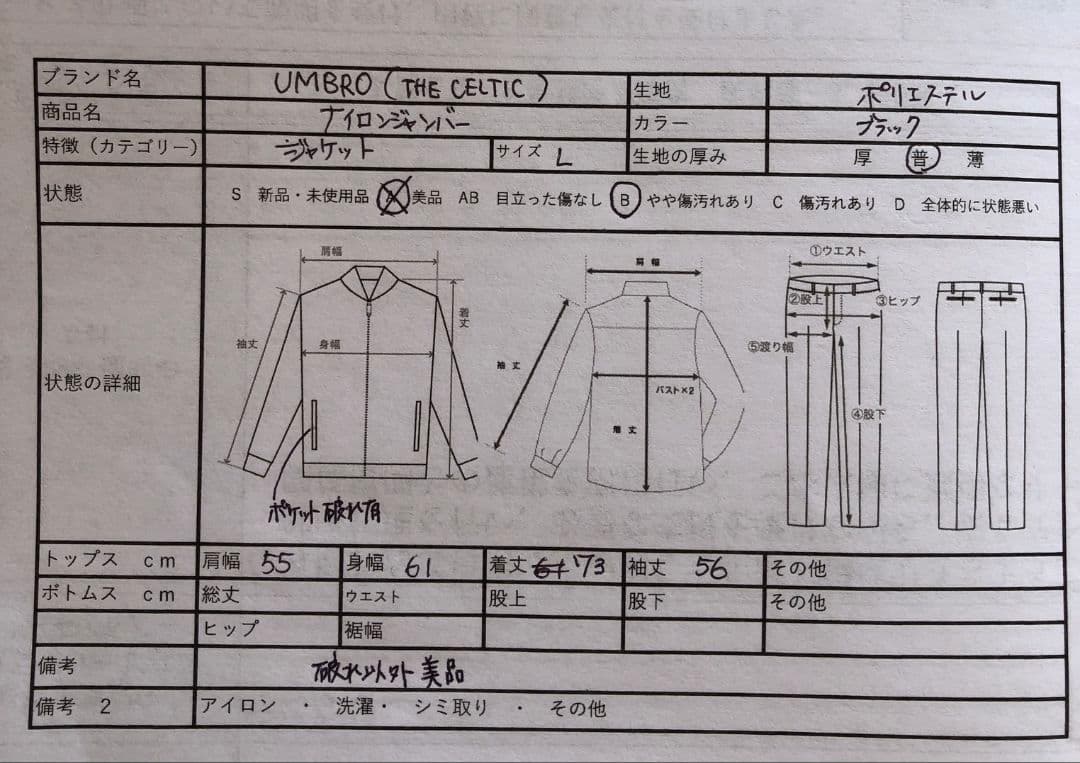 ブランド名 UMBRO (THE CELTIC) 生地 ポリエステル
商品名 ナイロンジャンバー カラー ブラック
特徴（カテゴリー） ジャケット サイズ L 生地の厚み 厚 普 薄
状態 S 新品・未使用品 A 美品 AB 目立った傷なし B やや傷汚れあり C 傷汚れあり D 全体的に状態悪い
状態の詳細
肩幅
着丈
袖丈
身幅
ポケット破れ有
肩幅
袖丈
バスト×2
着丈
①ウエスト
②股上 ③ヒップ
⑤渡り幅
④股下
トップス cm 肩幅 55 身幅 61 着丈 73 袖丈 56 その他
ボトムス cm 総丈 ウエスト 股上 股下 その他
ヒップ 裾幅
備考 破れ以外美品
備考 2 アイロン ・ 洗濯・ シミ取り ・ その他